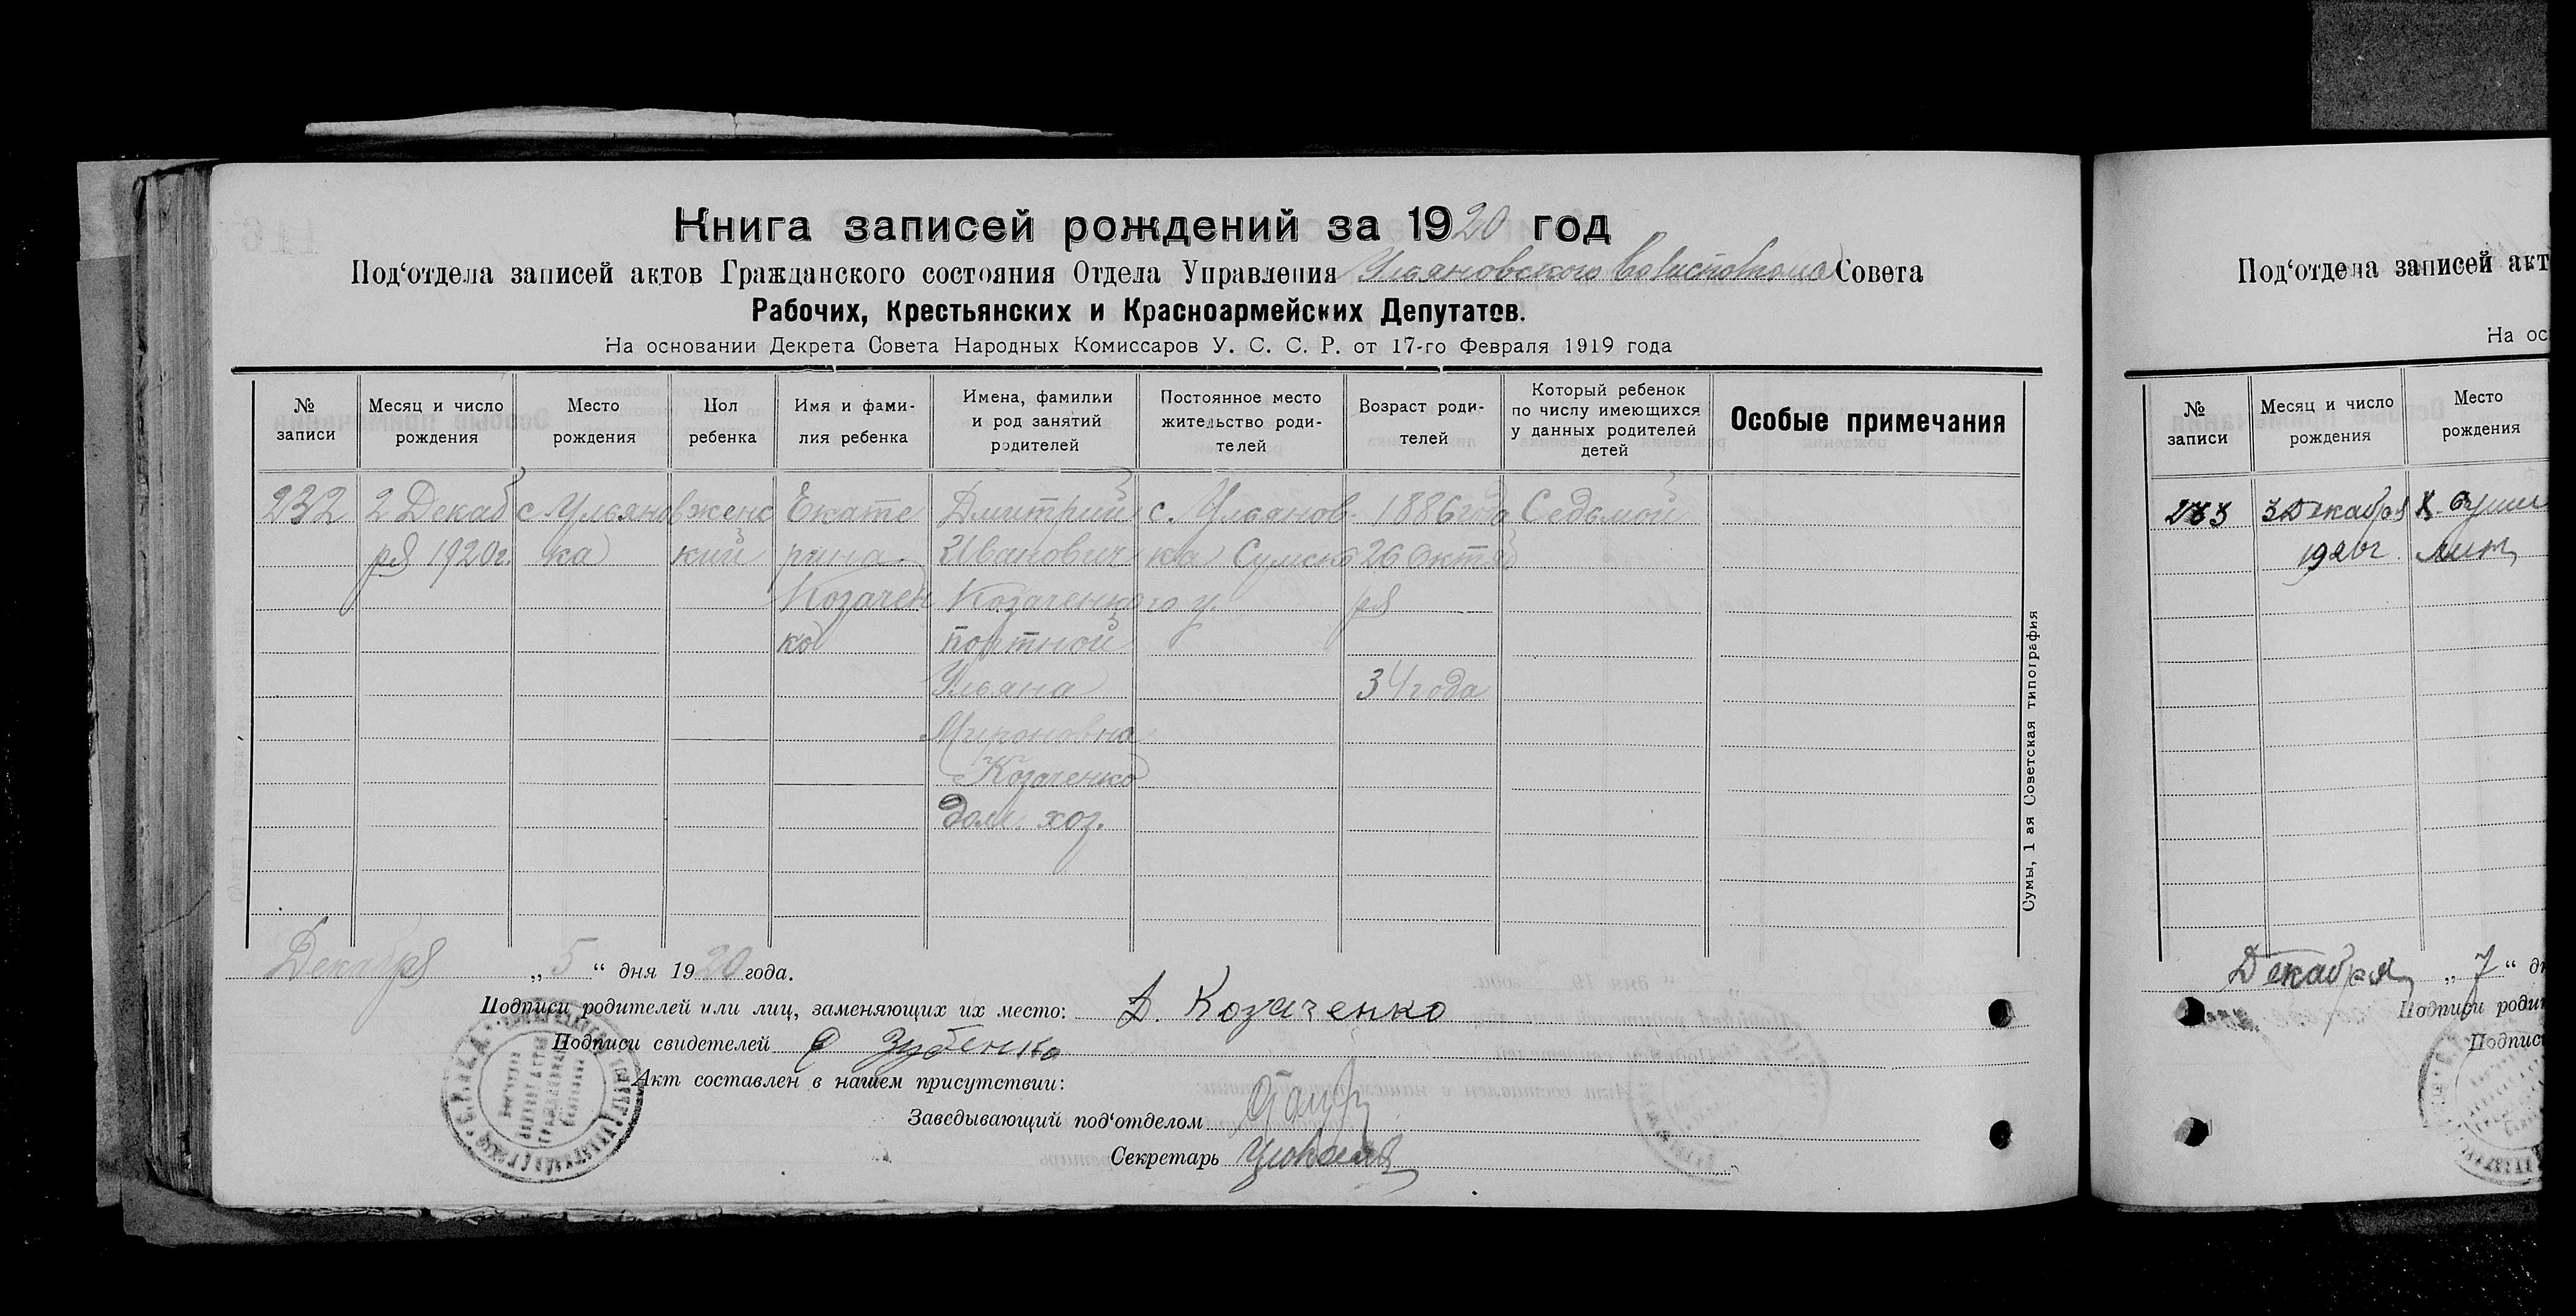 Книга записей рождений за 1920 год
Под‘отдела записей актов Гражданского состояния Отдела Управления Ульяновского Волисполкома Совета
Рабочих, Крестьянских и Красноармейских Депутатов.
На основании Декрета Совета Народных Комиссаров У. С. С. Р. от 17-го Февраля 1919 года
№ записи
Месяц и число рождения
Место рождения
Пол ребенка
Имя и фами-
лия ребенка
Имена, фамилии
и род занятий
родителей
Постоянное место
жительство роди-
телей
Возраст роди-
телей
Который ребенок
по числу имеющихся
у данных родителей
детей
Особые примечания
232 2 Декаб с. Ульянов женс Екате Дмитрий с. Ульянов- 1886 года Седьмой
ря 1920г. ка кий рина Иванович ка Сумско 26 Октяб
Козачен Козаченко го у. ря
ко портной
Ульяна 34 года
Мироновна
Козаченко
дом. хоз.
Декабря „ 5 “ дня 1920 года.
Подписи родителей или лиц, заменяющих их место: Д. Козаченко
Подписи свидетелей Зубенко
Акт составлен в нашем присутствии:
Заведывающий под‘отделом
Секретарь
Сумы, 1 ая Советская типография
Под‘отдела записей акт
На ос
№ записи
Месяц и число рождения
Место рождения
233 3 Декабря
1920г
Декабря „ 7 “ д
Подписи роди
Подпис